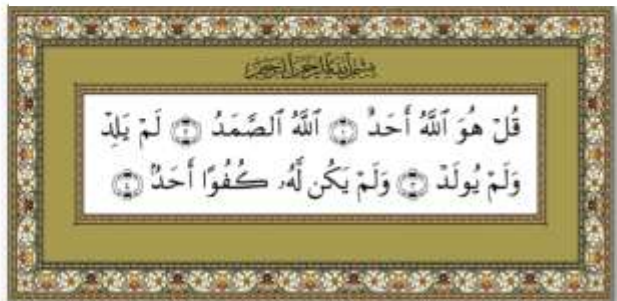 بِسْمِ اللَّهِ الرَّحْمَٰنِ الرَّحِيمِ
قُلْ هُوَ ٱللَّهُ أَحَدٌ ۝١ ٱللَّهُ ٱلصَّمَدُ ۝٢ لَمْ يَلِدْ
وَلَمْ يُولَدْ ۝٣ وَلَمْ يَكُن لَّهُۥ كُفُوًا أَحَدٌۢ ۝٤